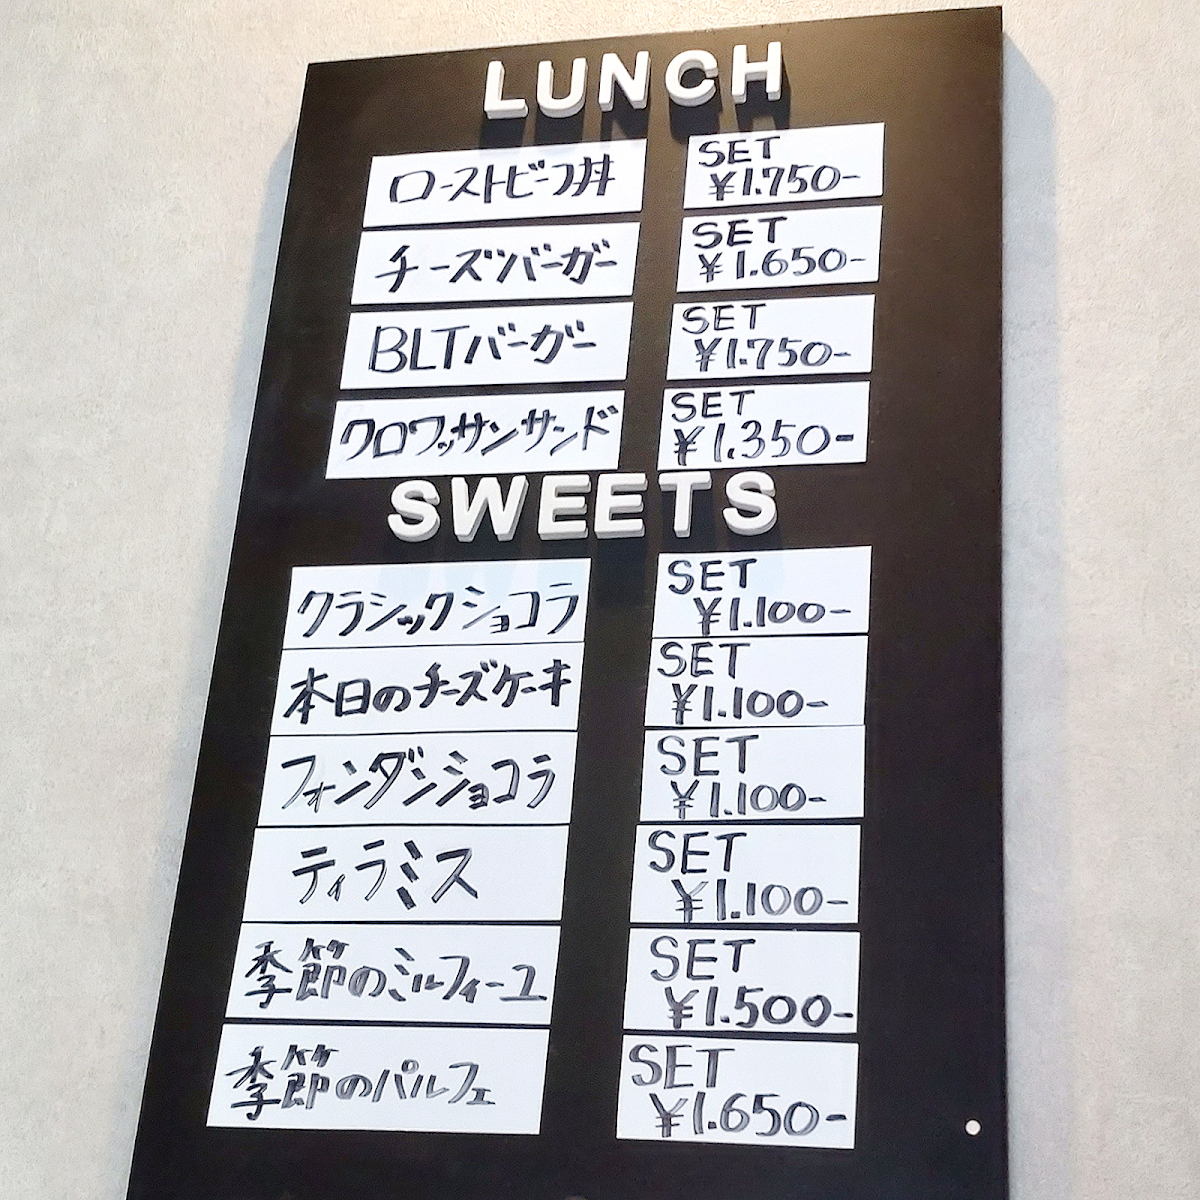 LUNCH
ローストビーフ丼
SET
¥1.750-
チーズバーガー
SET
¥1.650-
BLTバーガー
SET
¥1.750-
クロワッサンサンド
SET
¥1.350-
SWEETS
クラシックショコラ
SET
¥1.100-
本日のチーズケーキ
SET
¥1.100-
フォンダンショコラ
SET
¥1.100-
ティラミス
SET
¥1.100-
季節のミルフィーユ
SET
¥1.500-
季節のパルフェ
SET
¥1.650-